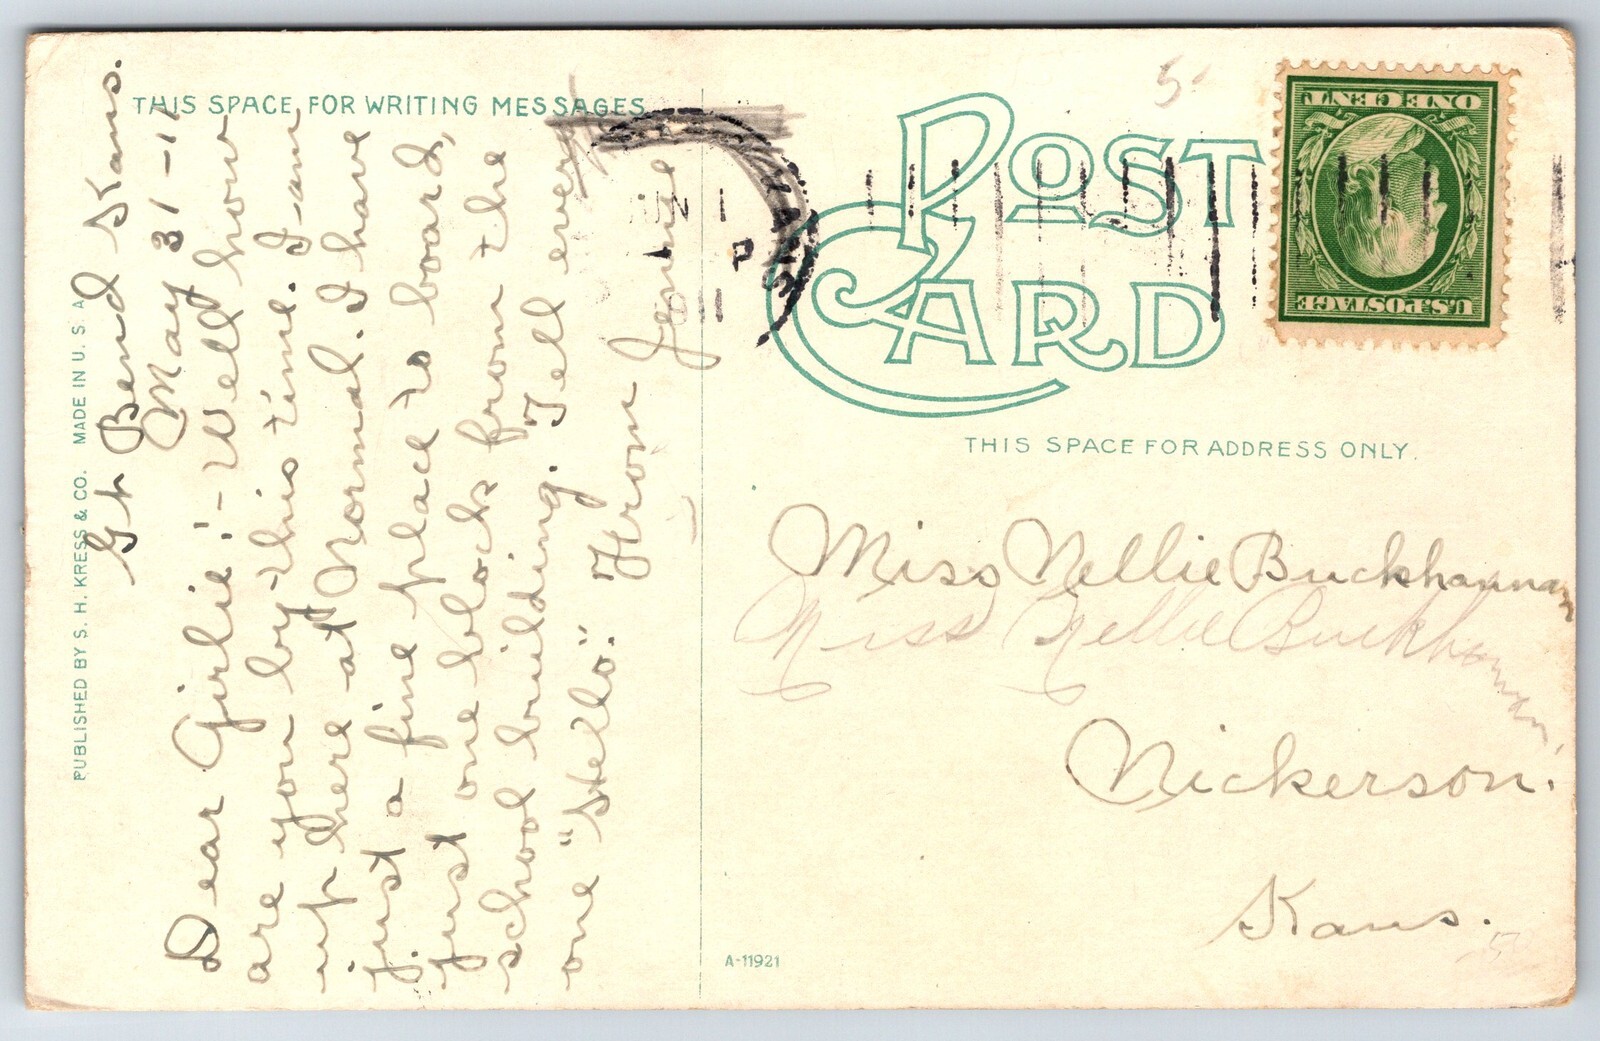 THIS SPACE FOR WRITING MESSAGES
Gt Bend Kans.
May 31-11
Dear Girlie:- Well how
are you by this time. I am
up here at Normal. I have
just a fine place to board,
just one block from the
school building. Tell every
one "Hello." From Jennie
PUBLISHED BY S. H. KRESS & CO. MADE IN U. S. A.
POST
CARD
THIS SPACE FOR ADDRESS ONLY.
Miss Nellie Buckhannan
Miss Nellie Buckhannan
Nickerson.
Kans.
A-11921
5-
50
U.S. POSTAGE
ONE CENT
KANS
1
P
11